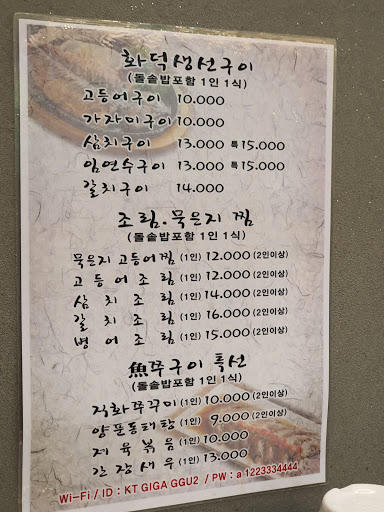 화덕생선구이
(돌솥밥포함 1인 1식)
고등어구이 10.000
가자미구이 10.000
삼치구이 13.000 특15.000
임연수구이 13.000 특15.000
갈치구이 14.000
조림.묵은지 찜
(돌솥밥포함 1인 1식)
묵은지 고등어찜 (1인) 12.000 (2인이상)
고등어조림 (1인) 12.000 (2인이상)
삼치조림 (1인) 14.000 (2인이상)
갈치조림 (1인) 16.000 (2인이상)
병어조림 (1인) 15.000 (2인이상)
魚쭈구이 특선
(돌솥밥포함 1인 1식)
직화쭈꾸미 (1인) 10.000 (2인이상)
양푼동태탕 (1인) 9.000 (2인이상)
제육볶음 (1인) 10.000
간장새우 (1인) 13.000
Wi-Fi / ID : KT GIGA GGU2 / PW : a 1223334444